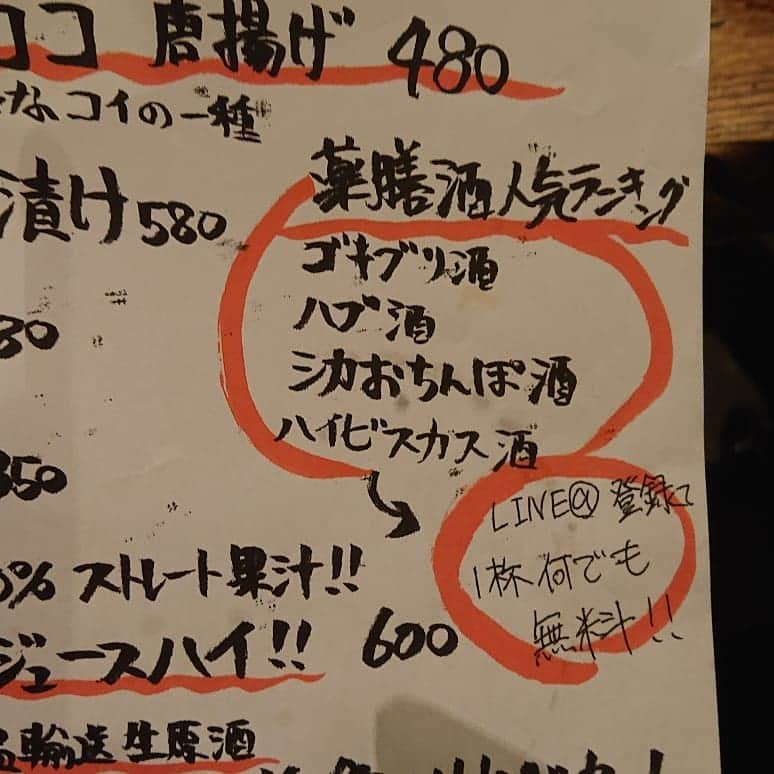 ココ 唐揚げ 480
なコイの一種
薬膳酒人気ランキング
漬け580
ゴキブリ酒
ハブ酒
30
シカおちんぽ酒
ハイビスカス酒
350
LINE@登録で
1杯何でも
無料!!
% ストレート果汁!!
ジュースハイ!! 600
輸送生原酒